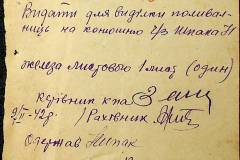 Видати для виделки поливал-
ниць на конюшню ч/з Шпака Н
железа листового 1 лист (один)
Керівник
9/II-42г. / Рахівник
Одержав Шпак